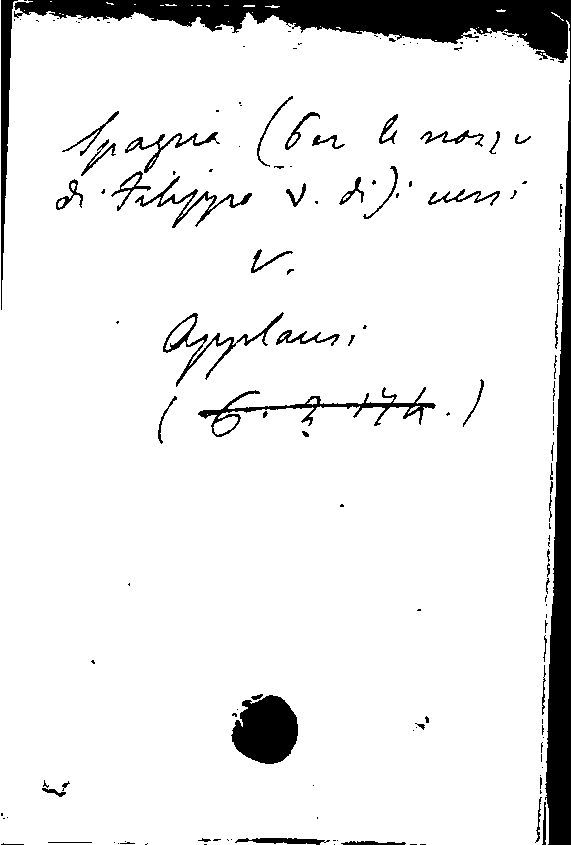 Spagna (Per le nozze
di Filippo V. di): versi
V.
Applausi
( 6. 2 174. )